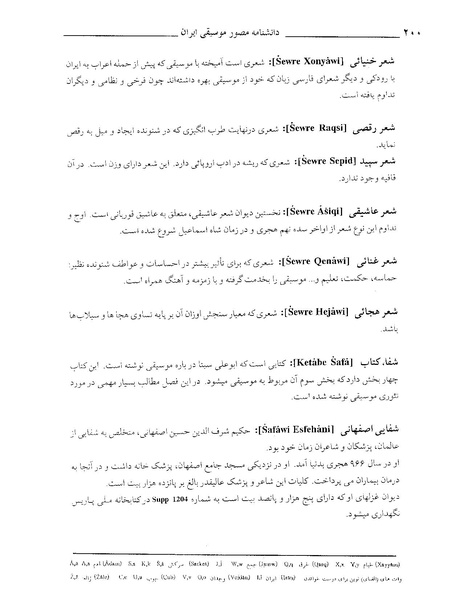 ۲۰۰ دانشنامه مصور موسیقی ایران
شعر خنیائی [Šewre Xonyàwi]: شعری است آمیخته با موسیقی که پیش از حمله اعراب به ایران
با رودکی و دیگر شعرای فارسی زبان که خود از موسیقی بهره داشته‌اند چون فرخی و نظامی و دیگران
تداوم یافته است.
شعر رقصی [Šewre Raqsi]: شعری درنهایت طرب انگیزی که در شنونده ایجاد و میل به رقص
نماید.
شعر سپید [Šewre Sepid]: شعری که ریشه در ادب اروپائی دارد. این شعر دارای وزن است. در آن
قافیه وجود ندارد.
شعر عاشیقی [Šewre Àšiqi]: نخستین دیوان شعر عاشیقی، متعلق به عاشیق قوربانی است. اوج و
تداوم این نوع شعر از اواخر سده نهم هجری و در زمان شاه اسماعیل شروع شده است.
شعر غنائی [Šewre Qenàwi]: شعری که برای تأثیر بیشتر در احساسات و عواطف شنونده نظیر:
حماسه، حکمت، تعلیم و... موسیقی را بخدمت گرفته و با زمزمه و آهنگ همراه است.
شعر هجائی [Šewre Hejàwi]: شعری که معیار سنجش اوزان آن بر پایه تساوی هجا ها و سیلاب‌ها
باشد.
شفا، کتاب [Ketàbe Šafà]: کتابی است که ابوعلی سینا در باره موسیقی نوشته است. این کتاب
چهار بخش دارد که بخش سوم آن مربوط به موسیقی میشود. در این فصل مطالب بسیار مهمی در مورد
تئوری موسیقی نوشته شده است.
شفایی اصفهانی [Šafàwi Esfehàni]: حکیم شرف الدین حسین اصفهانی، متخلص به شفایی از
عالمان، پزشکان و شاعران زمان خود بود.
او در سال ۹۶۶ هجری بدنیا آمد. او در نزدیکی مسجد جامع اصفهان، پزشک خانه داشت و در آنجا به
درمان بیماران می پرداخت. کلیات این شاعر و پزشک عالیقدر بالغ بر پانزده هزار بیت است.
دیوان غزلهای او که دارای پنج هزار و پانصد بیت است به شماره Supp 1204 در کتابخانه ملی پاریس
نگهداری میشود.